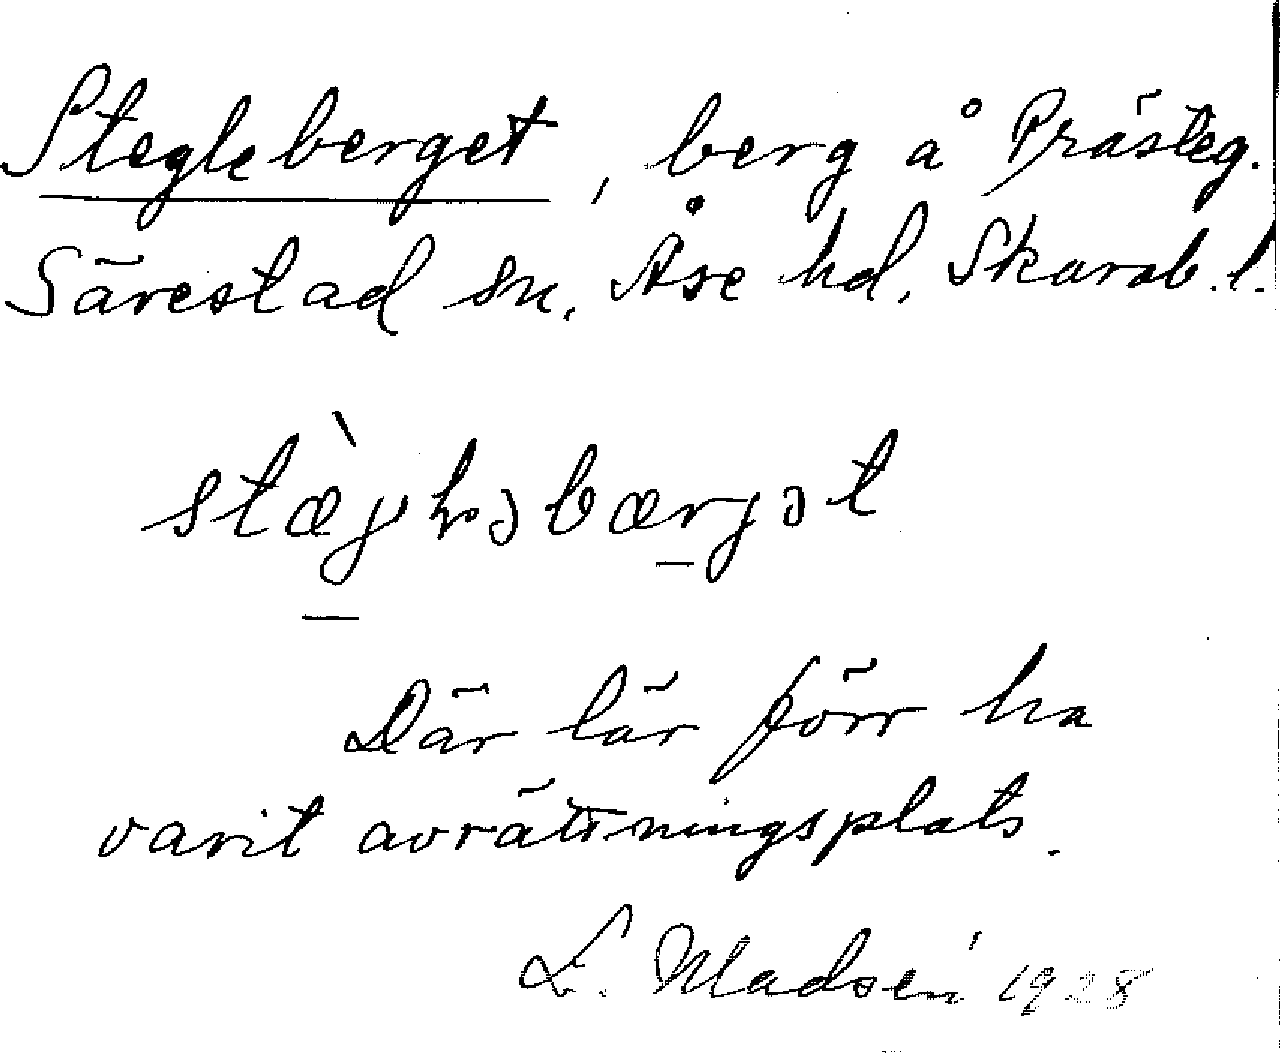 Stegleberget, berg å Prästeg.
Särestad sn. Åse hd, Skarab. l.
Där lär förr ha
varit avrättningsplats.
L. Madsén 1928